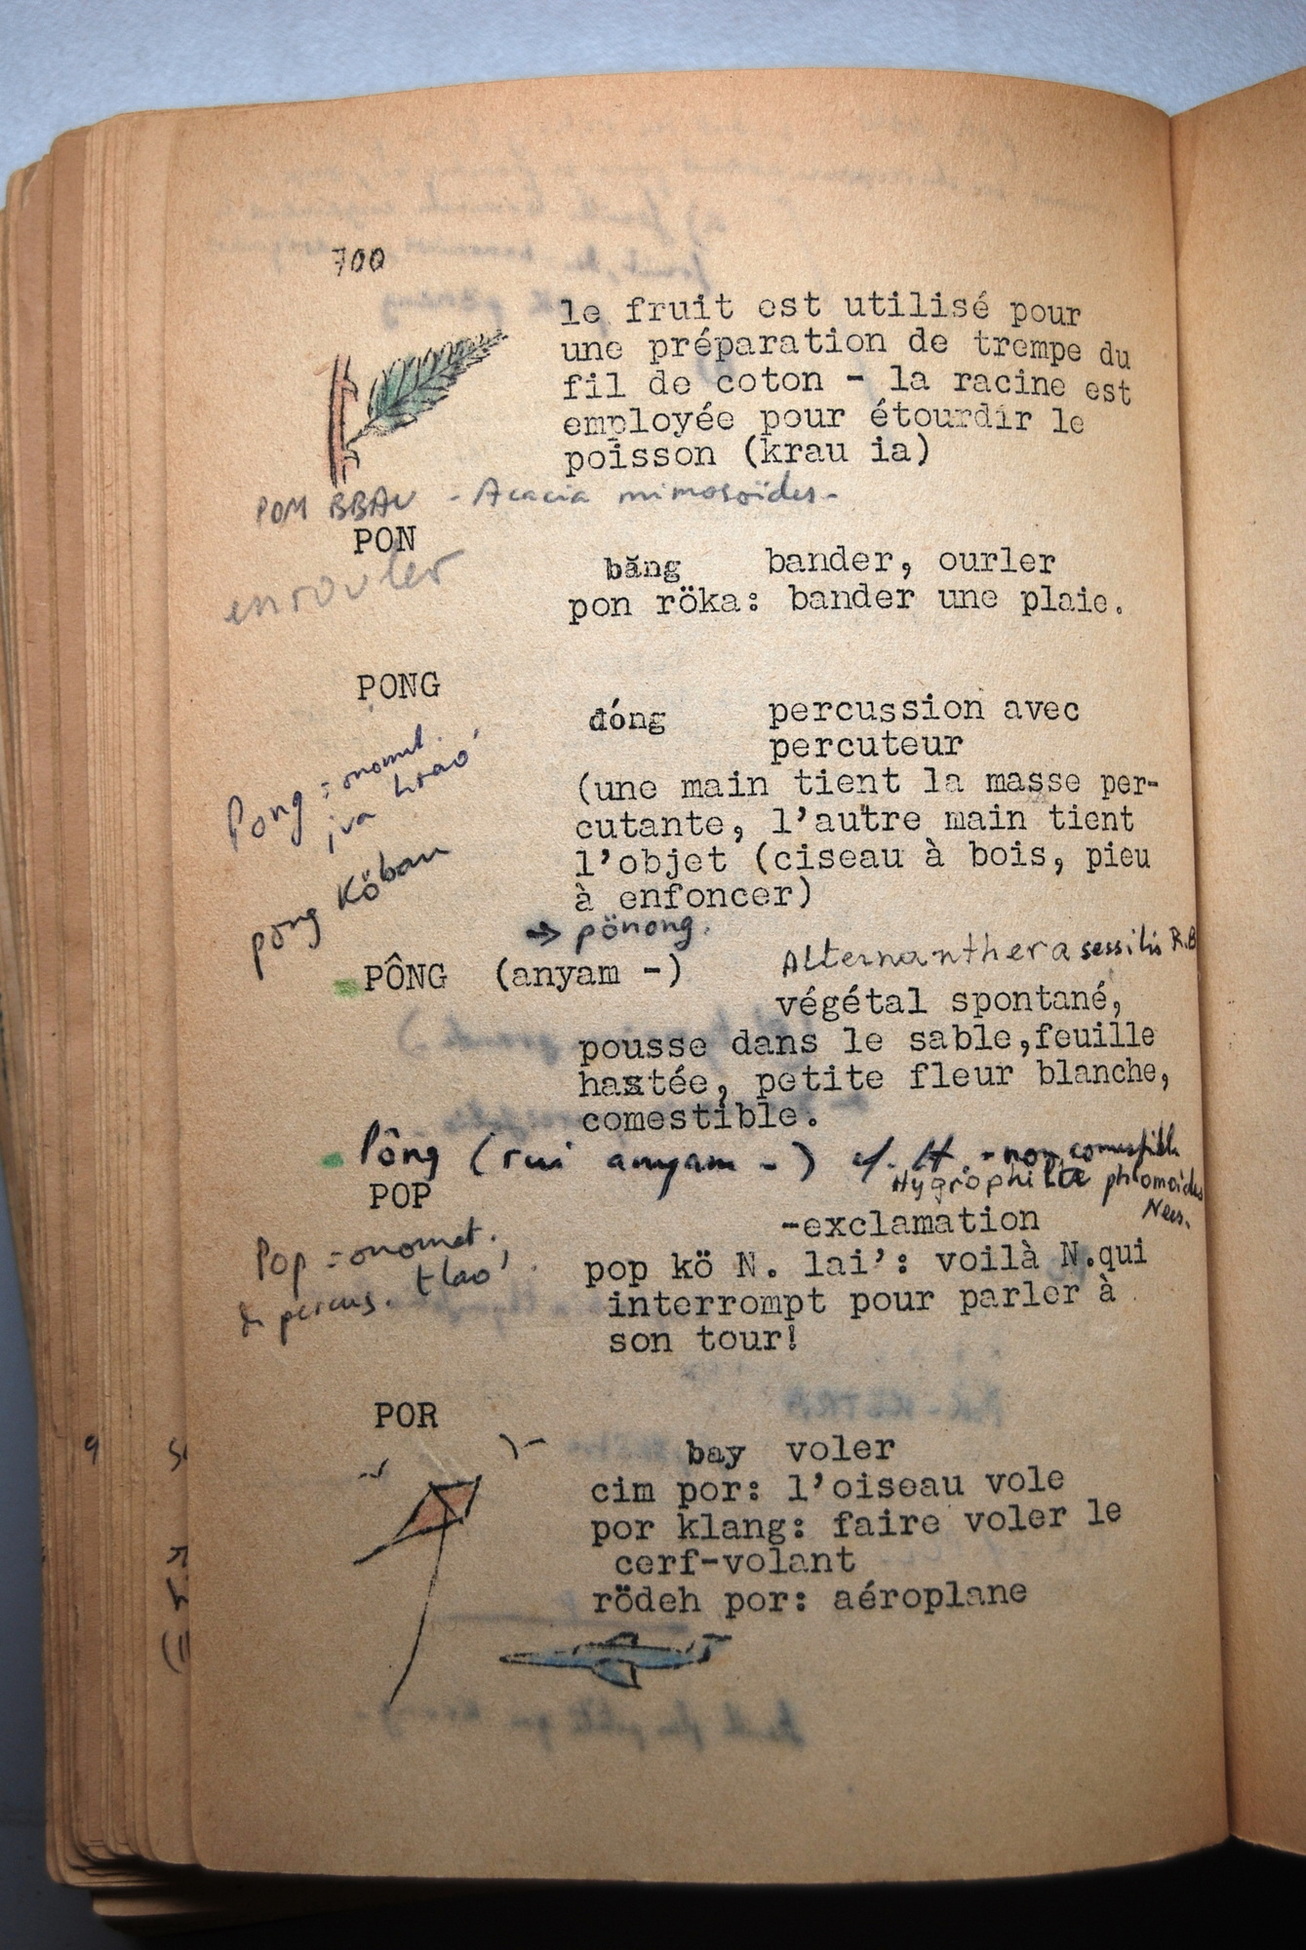 700
le fruit est utilisé pour
une préparation de trempe du
fil de coton - la racine est
employée pour étourdir le
poisson (krau ia)
POM BBAU - Acacia mimosoïdes-
PON
enrouler
băng bander, ourler
pon röka: bander une plaie.
PONG
đóng percussion avec
percuteur
(une main tient la masse per-
cutante, l'autre main tient
l'objet (ciseau à bois, pieu
à enfoncer)
→ pönong.
Pong = onomat.
jva hrao'
pong Köban
PÔNG (anyam -) Alternanthera sessilis R.B
végétal spontané,
pousse dans le sable,feuille
hastée, petite fleur blanche,
comestible.
Pông (rui anyam - ) - non comestible
Hygrophila phlomoides
Nees.
POP
Pop = onomat.
de percus. tlao'
-exclamation
pop kö N. lai': voilà N.qui
interrompt pour parler à
son tour!
POR
bay voler
cim por: l'oiseau vole
por klang: faire voler le
cerf-volant
rödeh por: aéroplane
9